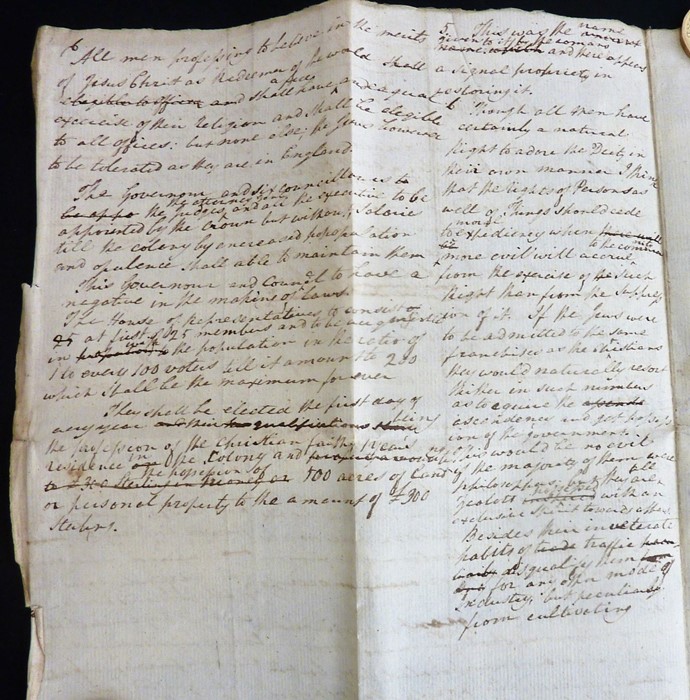 6 All men professing to believe in the merits
of Jesus Christ as Redeemer of the world shall
a free
eligible to offices and shall have and equal
exercise of their religion and shall be elegible
to all offices: but none else; the Jews however
to be tolerated as they are in England
The Governour and six councillors is to
be appo the Judges, the attorney gen, and all the executive to be
appointed by the Crown but without Salarie
till the colony by encreased popopulation
and opulence shall able to maintain them
This Governour and Council to have a
negative in the making of laws
The House of representatives to consist of
25 at first of 25 members and to be augmented
in with the population in the ratio of
1 to every 100 voters till it amount to 200
which shall be the maximum for ever
They shall be elected the first day of
every year and their qualifications shall being
the profession of the christian faith, years
residence in the Colony and
the possession of
or 500 acres of land
or personal property to the amount of £300
Sterling.
5. This way the name
given to it by the romans
and there appears
a signal propriety in
restoring it.
6 Though all men have
certainly a natural
Right to adore the Deity in
their own manner I think
that the Rights of Persons as
well of Things should cede
to expediency when
more evil will accrue to the community
from the exercise of the such
Right than from the suppress
ion of it. If the Jews were
to be admitted to the same
franchises as the Christians
they would naturally resort
thither in such numbers
as to equire the ascends
ascendency and get possess
ion of the government.
This would be no evil
if the majority of them were
philosophers; but they are all
zealots with an
exclusive spirit towards others
Besides their inveterate
habits of trade traffic
disqualify them
for any other mode of
Industry, but peculiarly
from cultivating